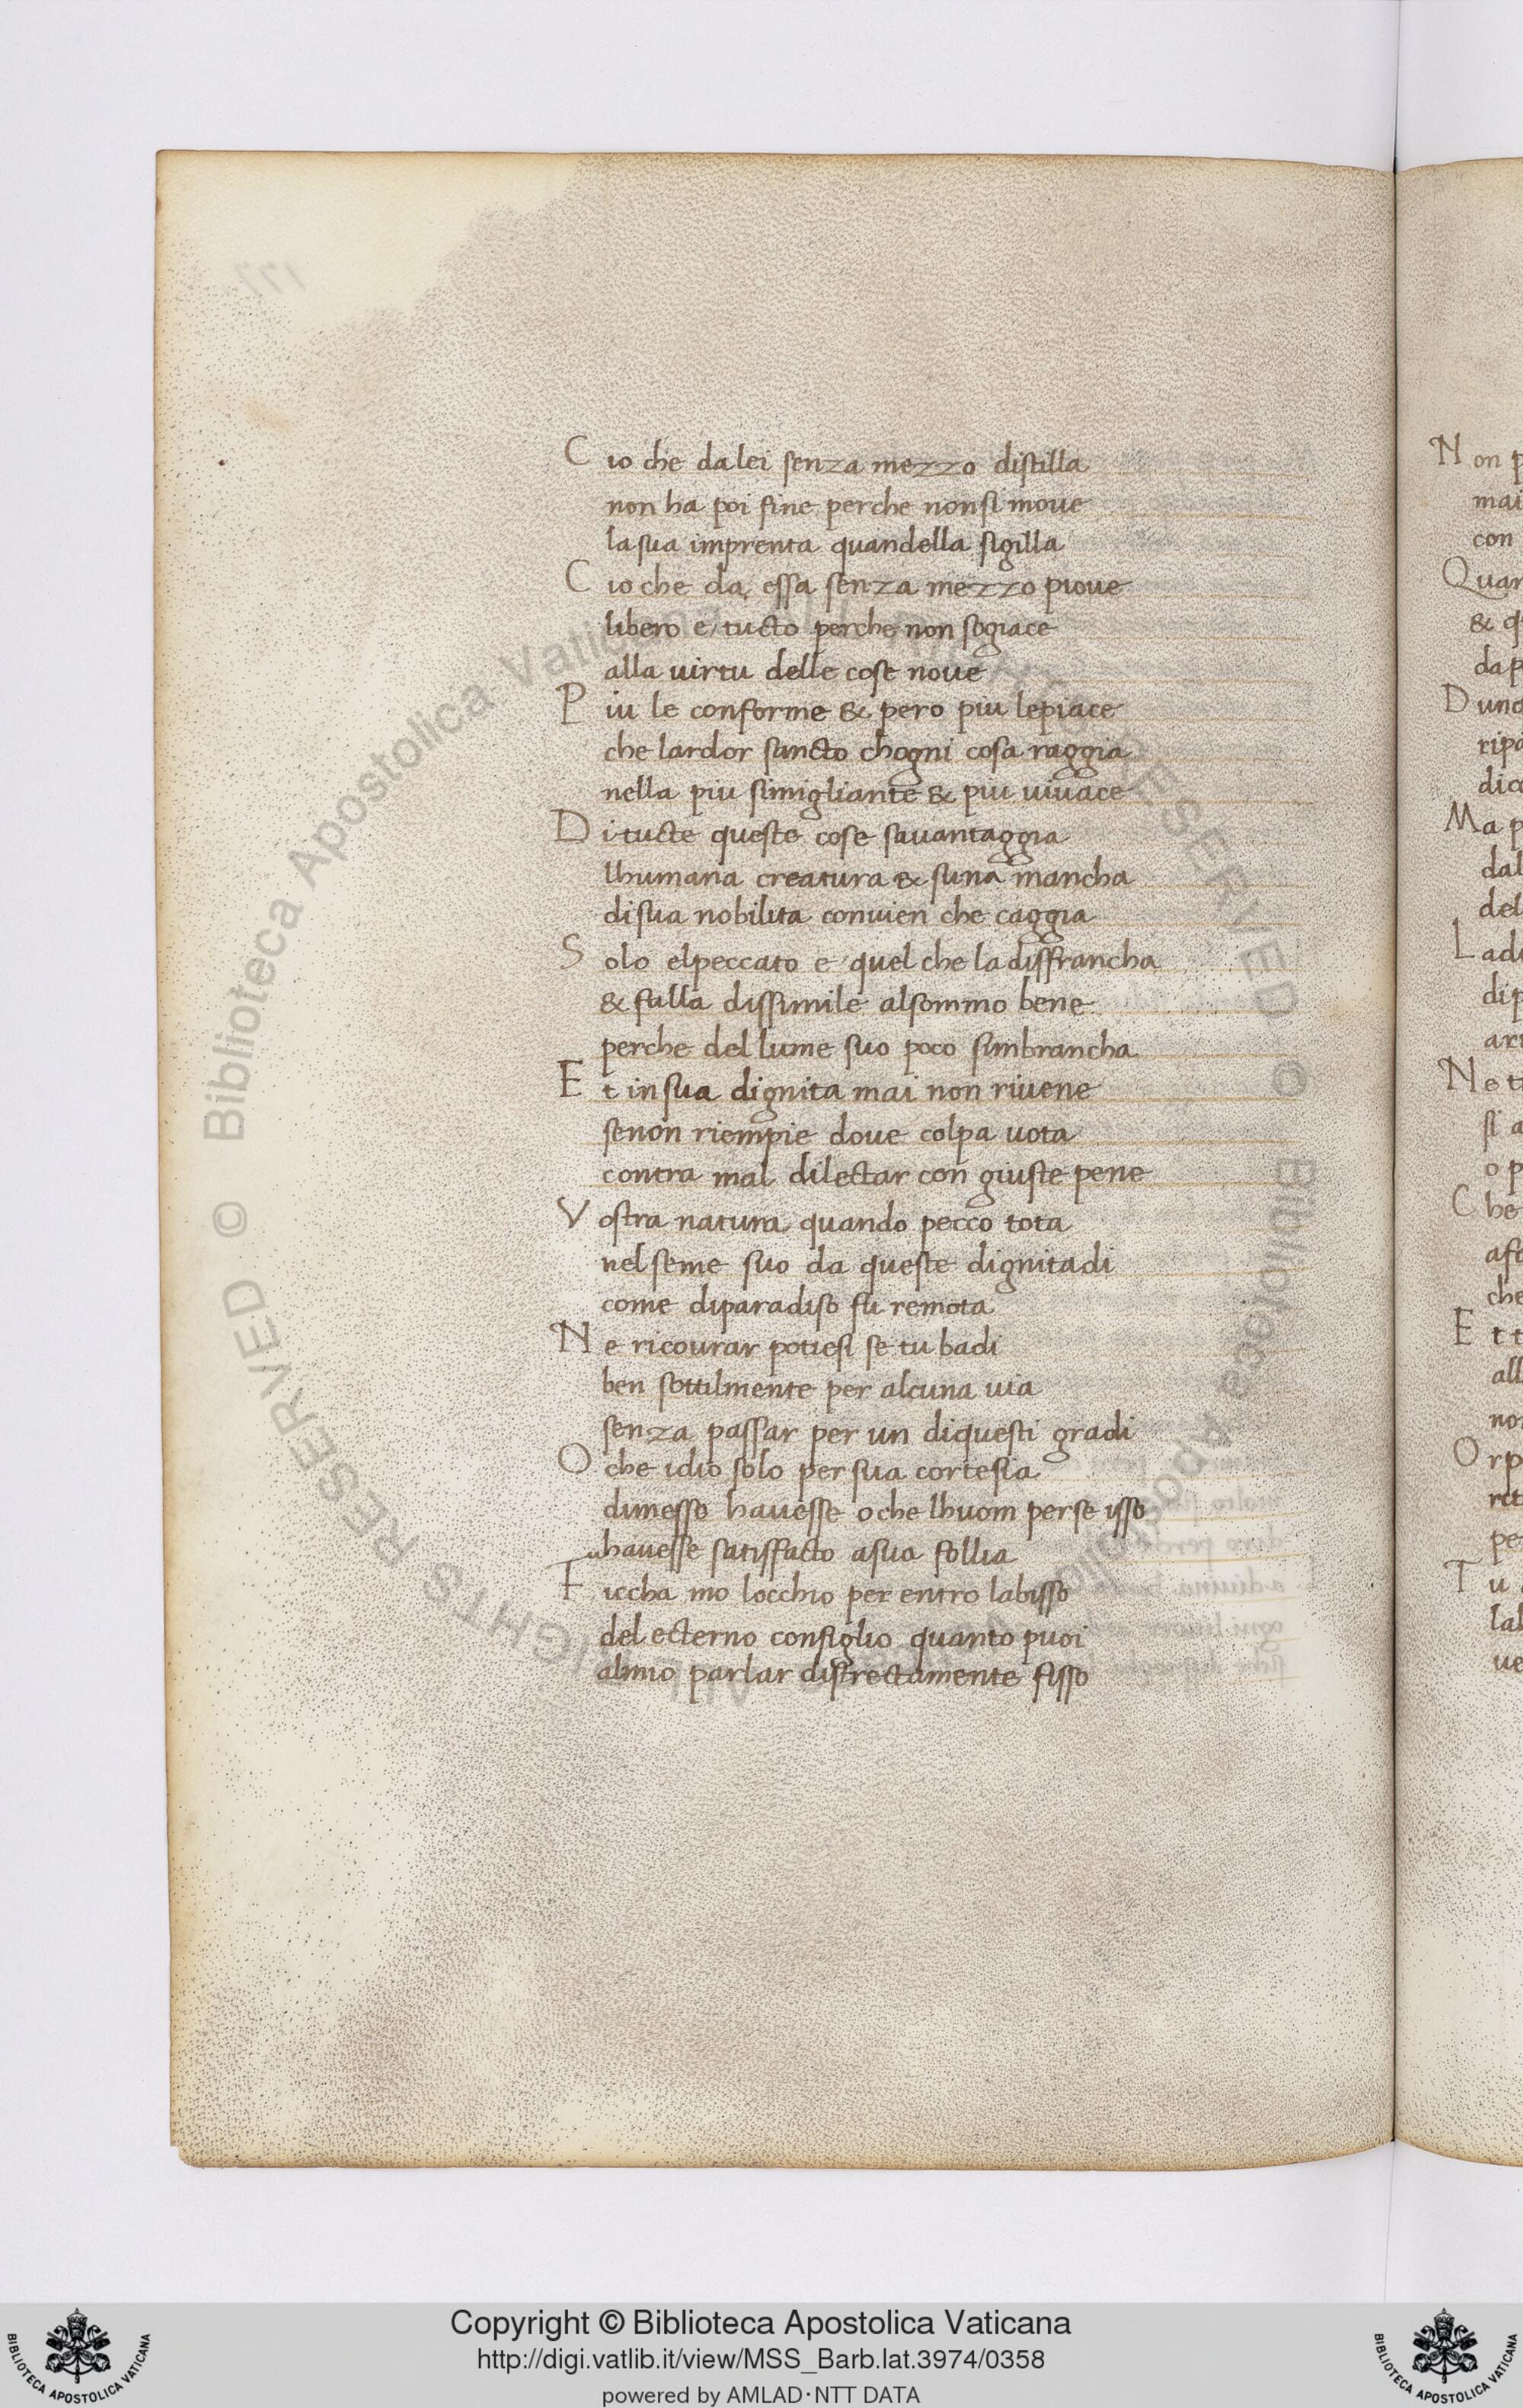 Cio che da lei senza mezzo distilla
non ha poi fine perche non si move
la sua imprenta quandella sigilla
Cio che da essa senza mezzo piove
libero e tucto perche non sogiace
alla virtu delle cose nove
Piu le conforme & pero piu le piace
che lardor sancto chogni cosa raggia
nella piu simigliante & piu vivace
Di tucte queste cose savantaggia
lhumana creatura & suna mancha
di sua nobilita convien che caggia
Solo el peccato e quel che la disfrancha
& falla dissimile al sommo bene
perche del lume suo poco simbrancha
Et in sua dignita mai non rivene
se non riempie dove colpa vota
contra mal dilectar con giuste pene
Vostra natura quando pecco tota
nel seme suo da queste dignitadi
come di paradiso fu remota
Ne ricovrar potiesi se tu badi
ben sottilmente per alcuna via
senza passar per un di questi gradi
O che idio solo per sua cortesia
dimesso havesse o che lhuom per se isso
havesse satisfacto a sua follia
Ficcha mo locchio per entro labisso
del ecterno consiglio quanto puoi
al mio parlar distrectamente fisso
Non
mai
con
Quan
&
da
Dunq
ripa
dico
Ma p
dal
del
La di
di p
art
Ne t
si a
o p
Che
a fa
che
Et t
all
non
Or p
ret
per
Tu
lal
ve
177
Copyright © Biblioteca Apostolica Vaticana
http://digi.vatlib.it/view/MSS_Barb.lat.3974/0358
powered by AMLAD·NTT DATA
BIBLIOTECA APOSTOLICA VATICANA
BIBLIOTECA APOSTOLICA VATICANA